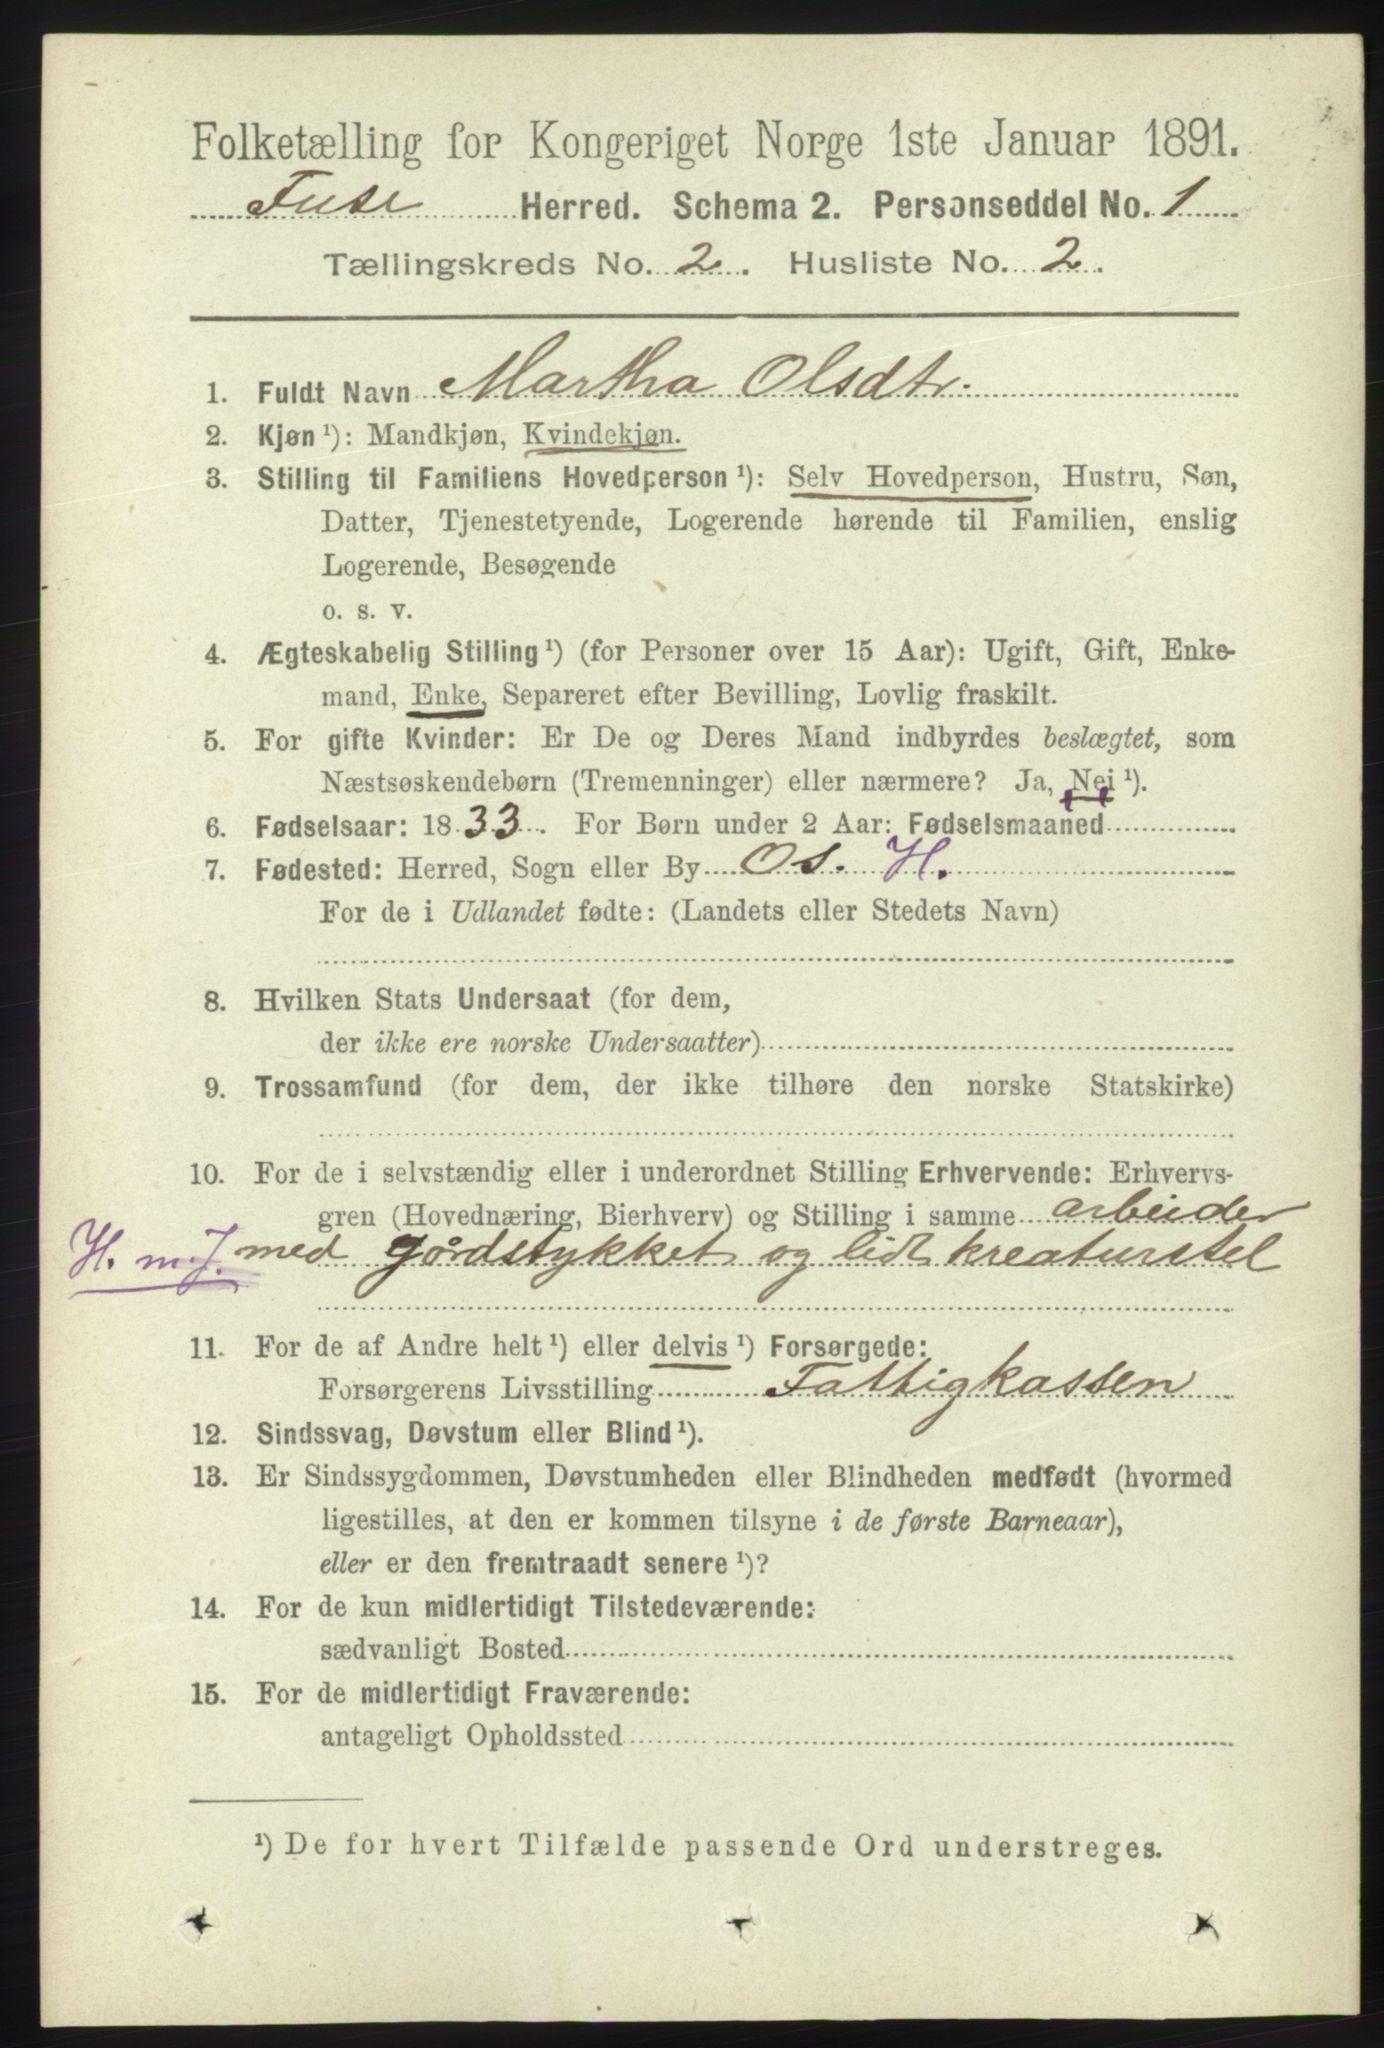 Folketælling for Kongeriget Norge 1ste Januar 1891.
Fuse Herred. Schema 2. Personseddel No. 1
Tællingskreds No. 2. Husliste No. 2.
1. Fuldt Navn Martha Olsdtr.
2. Kjøn¹): Mandkjøn, Kvindekjøn.
3. Stilling til Familiens Hovedperson¹): Selv Hovedperson, Hustru, Søn,
Datter, Tjenestetyende, Logerende hørende til Familien, enslig
Logerende, Besøgende
o. s. v.
4. Ægteskabelig Stilling¹) (for Personer over 15 Aar): Ugift, Gift, Enke-
mand, Enke, Separeret efter Bevilling, Lovlig fraskilt.
5. For gifte Kvinder: Er De og Deres Mand indbyrdes beslægtet, som
Næstsøskendebørn (Tremenninger) eller nærmere? Ja, Nei¹).
6. Fødselsaar: 1833. For Børn under 2 Aar: Fødselsmaaned
7. Fødested: Herred, Sogn eller By Os. H.
For de i Udlandet fødte: (Landets eller Stedets Navn)
8. Hvilken Stats Undersaat (for dem,
der ikke ere norske Undersaatter)
9. Trossamfund (for dem, der ikke tilhøre den norske Statskirke)
10. For de i selvstændig eller i underordnet Stilling Erhvervende: Erhvervs-
gren (Hovednæring, Bierhverv) og Stilling i samme arbeider
H. m. J. med gårdstykket og lidt kreaturstel
11. For de af Andre helt¹) eller delvis¹) Forsørgede:
Forsørgerens Livsstilling Fattigkassen
12. Sindssvag, Døvstum eller Blind¹).
13. Er Sindssygdommen, Døvstumheden eller Blindheden medfødt (hvormed
ligestilles, at den er kommen tilsyne i de første Barneaar),
eller er den fremtraadt senere¹)?
14. For de kun midlertidigt Tilstedeværende:
sædvanligt Bosted
15. For de midlertidigt Fraværende:
antageligt Opholdssted
¹) De for hvert Tilfælde passende Ord understreges.